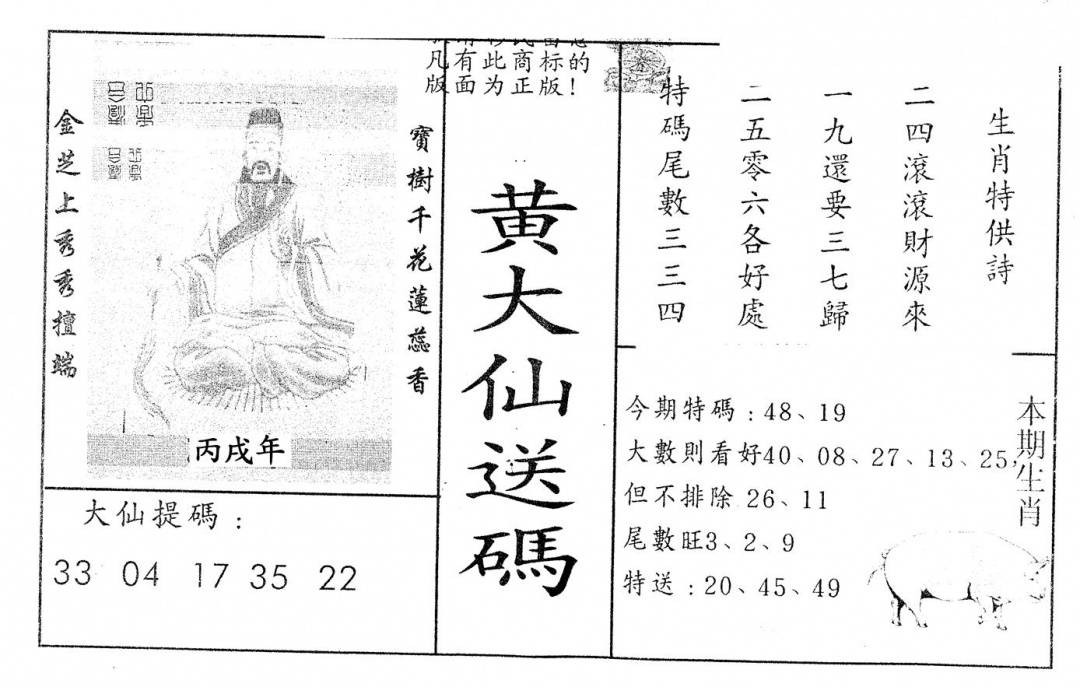 凡有此商标的
版面为正版!
金芝上秀秀擅端
寶樹千花蓮蕊香
丙戌年
大仙提碼:
33 04 17 35 22
黄大仙送碼
生肖特供詩
二四滾滾財源來
一九還要三七歸
二五零六各好處
特碼尾數三三四
今期特碼:48、19
大數則看好40、08、27、13、25,
但不排除 26、11
尾數旺3、2、9
特送:20、45、49
本期生肖